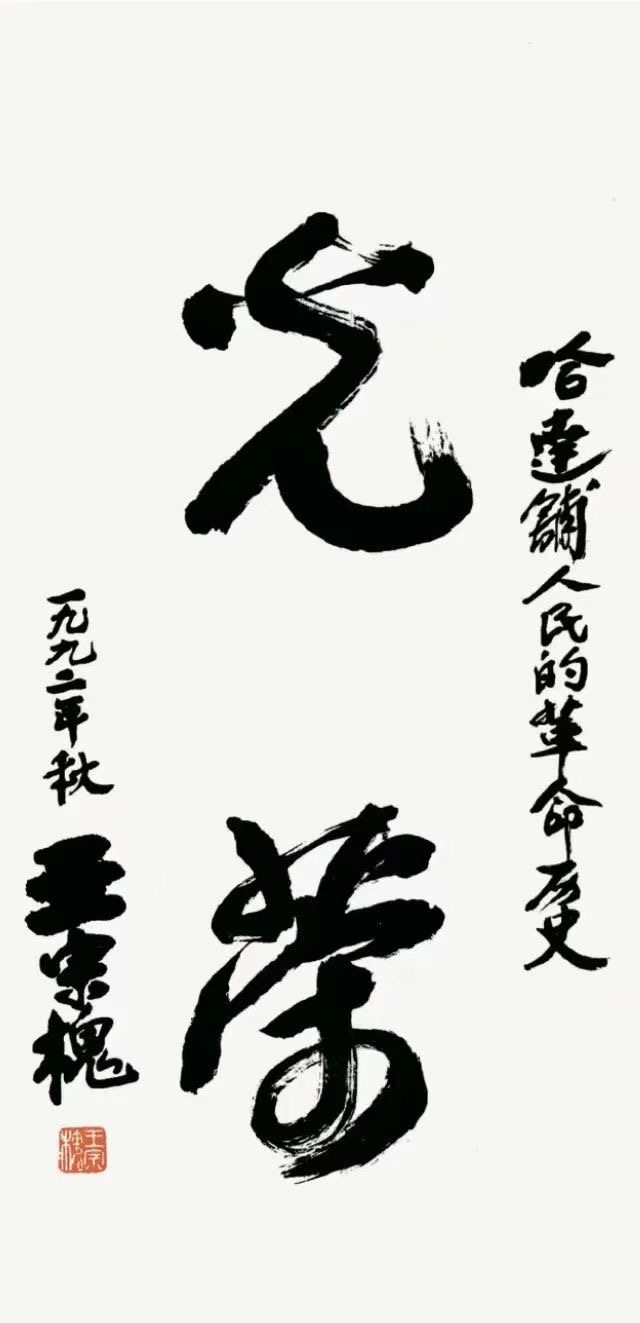 哈達鋪人民的革命历史
光荣
一九九二年秋
王宗槐
王宗槐